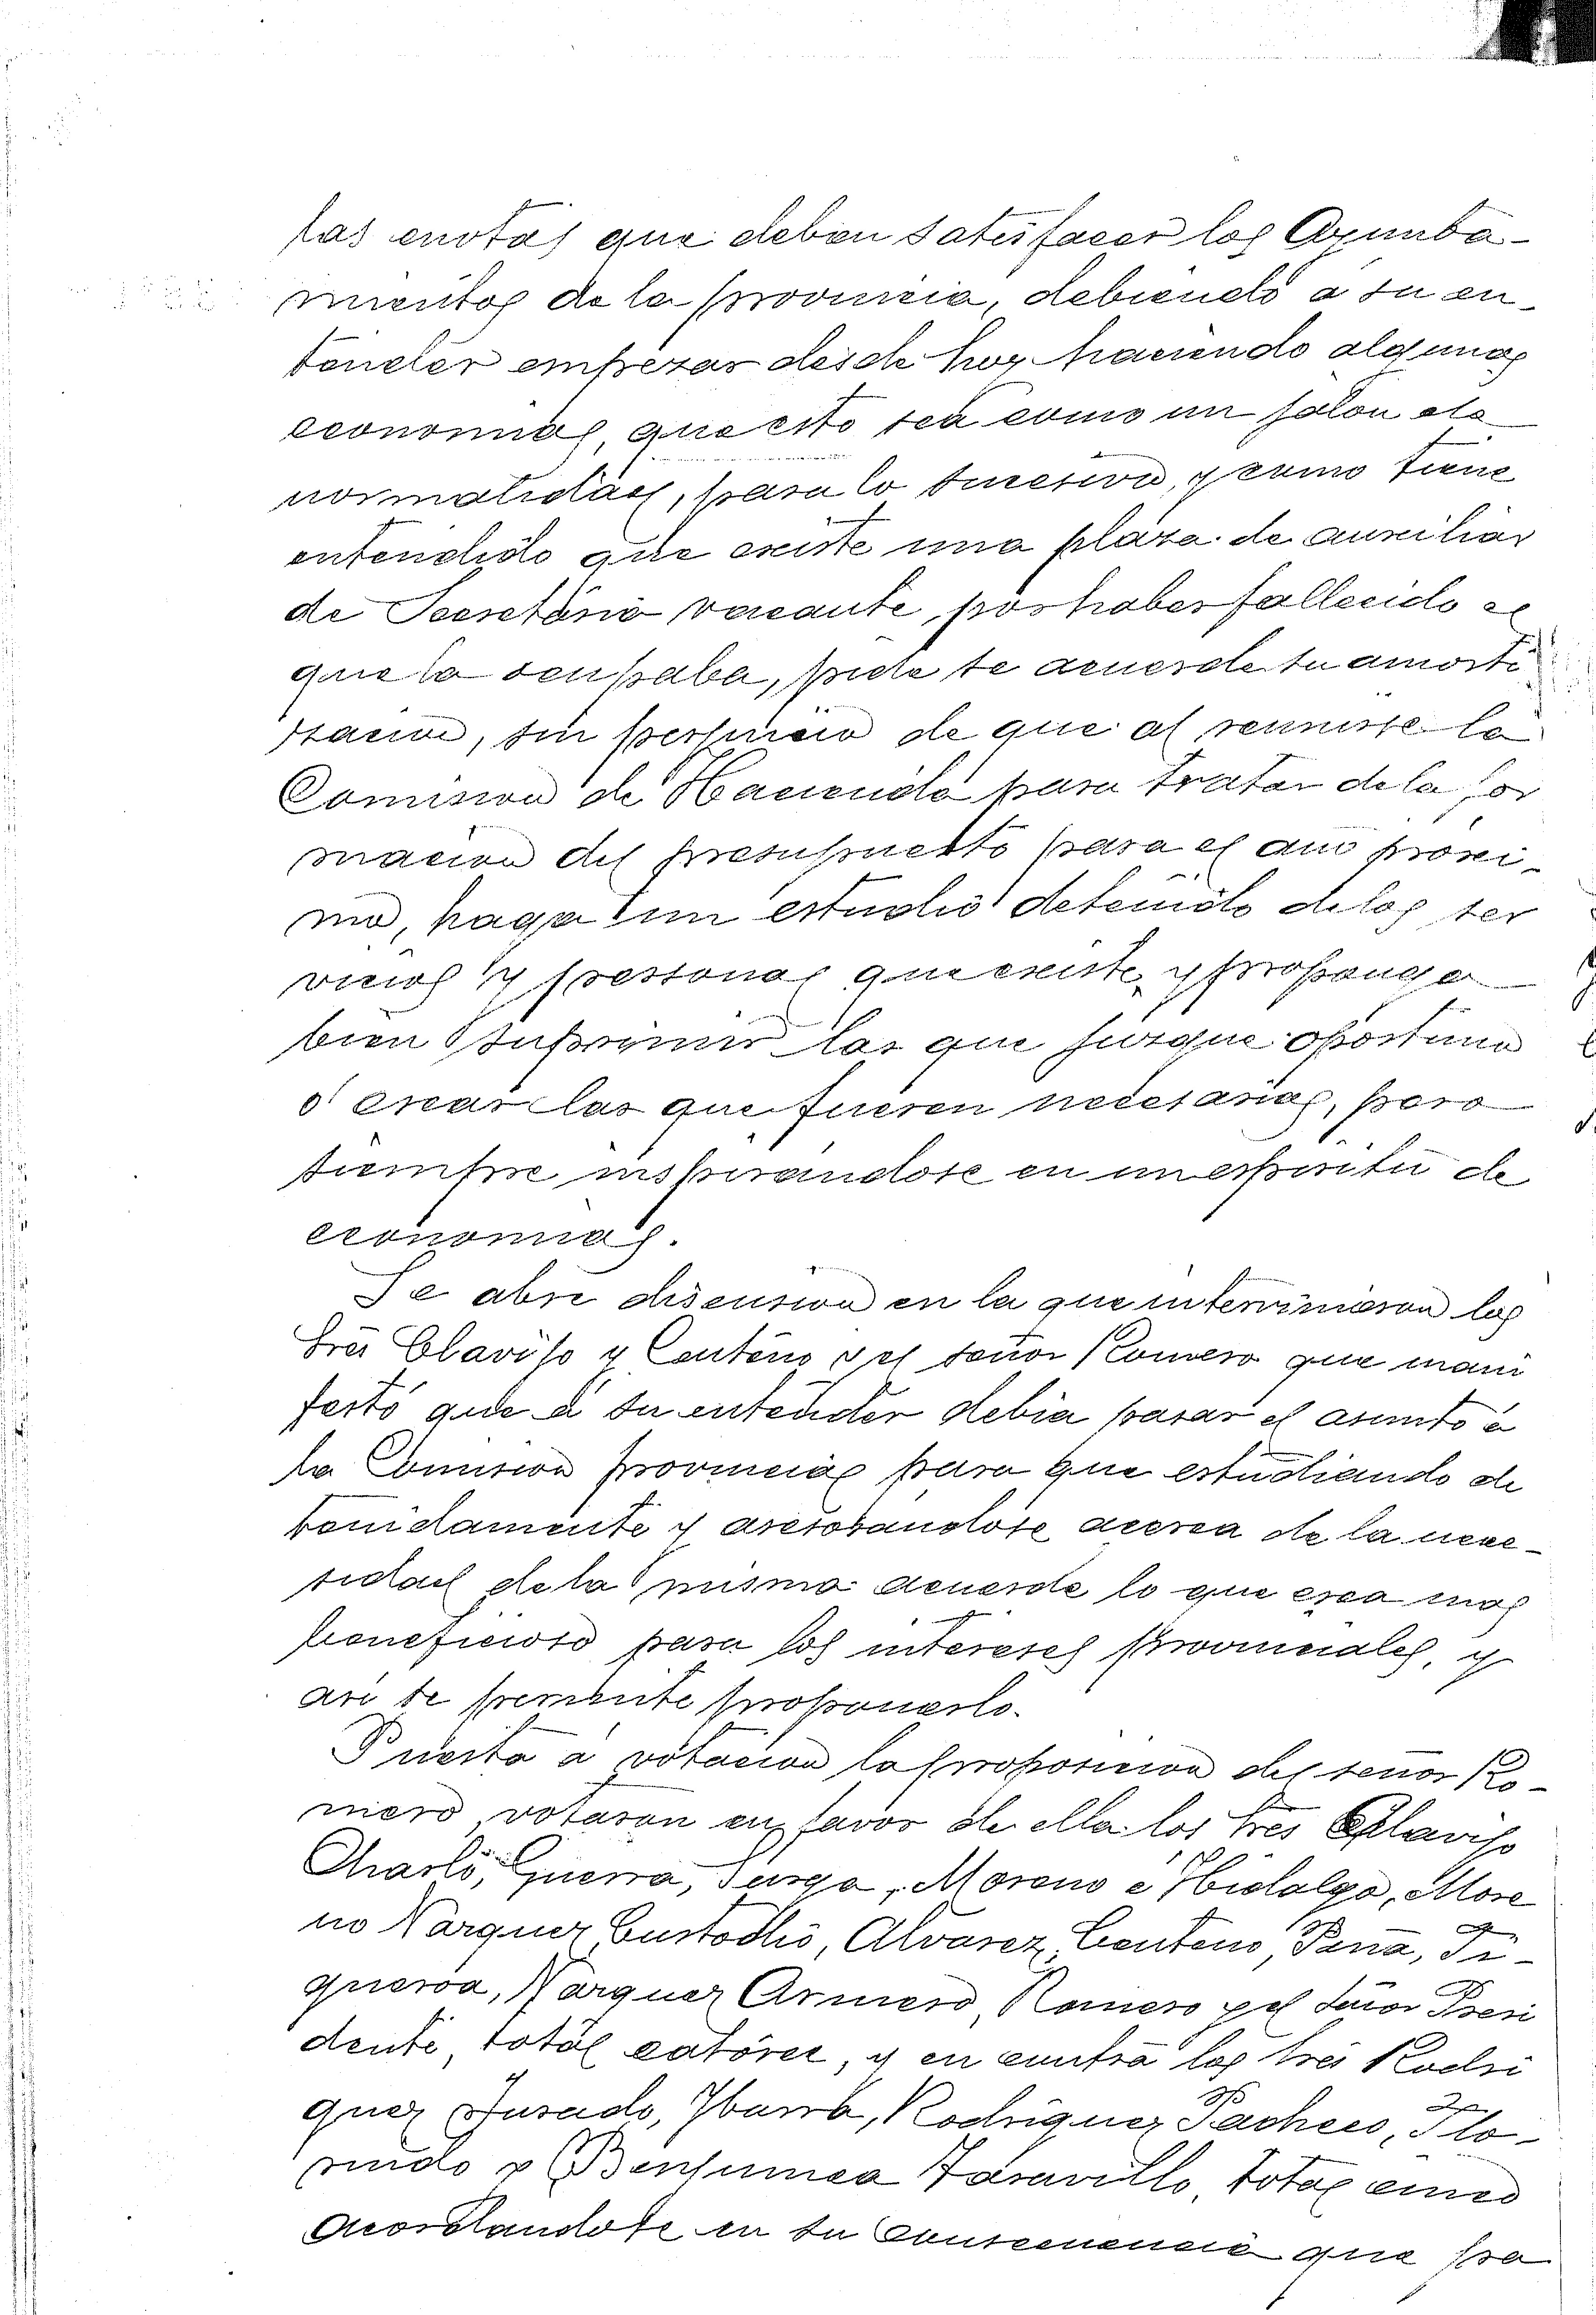 las cuotas que deban satisfacer los Ayunta-
mientos de la provincia, debiendo a su en-
tender empezar desde hoy haciendo algunas
economias, que esto sea como un jalon de
normalidad, para lo sucesivo, y como tiene
entendido que existe una plaza de auxiliar
de Secretário vacante, por haber fallecido el
que la ocupaba, pide se acuerde su amorti
zacion, sin perjuicio de que al reunirse la
Comision de Hacienda para tratar de la for
macion del presupuesto para el año proxi-
mo, haga un estudio detenido de los ser
vicios y personal que existe, y proponga
bien suprimir las que juzgue oportuno
ó crear las que fueren necesarias, pero
siempre inspirandose en un espiritu de
economias.
Se abre discusion en la que intervinieron los
Sres Clavijo y Centeno y el señor Romero que mani
festó que á su entender debia pasar el asunto á
la Comision provincial para que estudiando de
tenidamente y asesorandose acerca de la nece-
sidad de la misma acuerde lo que crea mas
beneficioso para los intereses provinciales, y
asi se permite proponerlo.
Puesta á votacion la proposicion del señor Ro-
mero, votaron en favor de ella los Sres Clavijo
Charlo, Guerra, Jurga, Moreno é Hidalgo, More
no Varquez Custodio, Alvarez, Centeno, Peña, Fi-
gueroa, Varquez Armero, Romero y el señor Presi
dente, total catórce, y en contra los Sres Rodri
guez Jurado, Ybarra, Rodriguez Pacheco, Flo-
rindo y Benjumea Zaravillo, total cinco
Acordandose en su consecuencia que pa